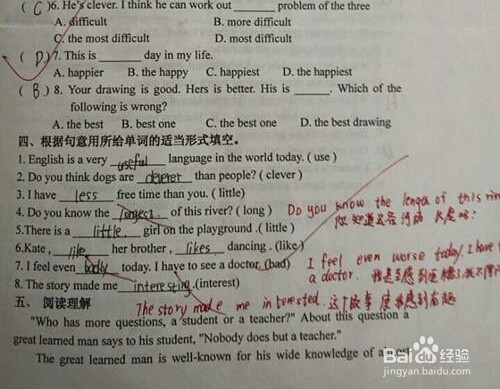 ( C )6. He's clever. I think he can work out ______ problem of the three
A. difficult B. more difficult
C. the most difficult D. most difficult
( D )7. This is ______ day in my life.
A. happier B. the happy C. happiest D. the happiest
( B ) 8. Your drawing is good. Hers is better. His is ______. Which of the
following is wrong?
A. the best B. best one C. the best one D. the best drawing
四、根据句意用所给单词的适当形式填空。
1. English is a very useful language in the world today. ( use )
2. Do you think dogs are cleverer than people? ( clever )
3. I have less free time than you. ( little)
4. Do you know the longest of this river? ( long ) Do you know the length of this river
你知道这条河的长度吗?
5.There is a little girl on the playground .( little )
6.Kate , like her brother , likes dancing . (like )
7. I feel even badly today. I have to see a doctor. (bad) I feel even worse today. I have
a doctor.
8. The story made me interesting.(interest)
The story made me interested. 这个故事使我感到有趣
五、 阅读理解
"Who has more questions, a student or a teacher?" About this question a
great learned man says to his student, "Nobody does but a teacher."
The great learned man is well-known for his wide knowledge of
Baidu 经验
jingyan.baidu.com